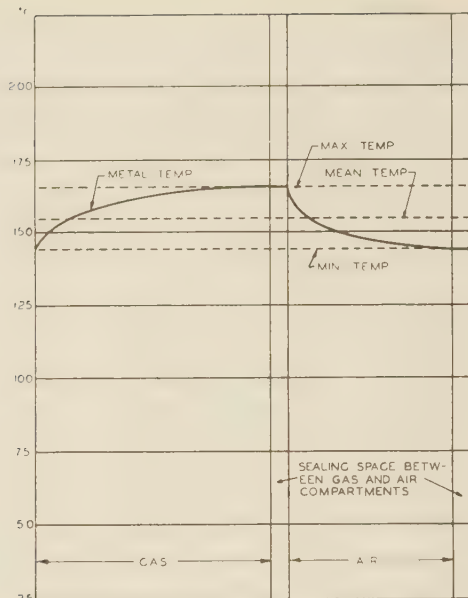 °F
200
175
150
125
100
75
50
25
METAL TEMP
MAX TEMP
MEAN TEMP
MIN TEMP
SEALING SPACE BETW-
EEN GAS AND AIR
COMPARTMENTS
GAS
AIR